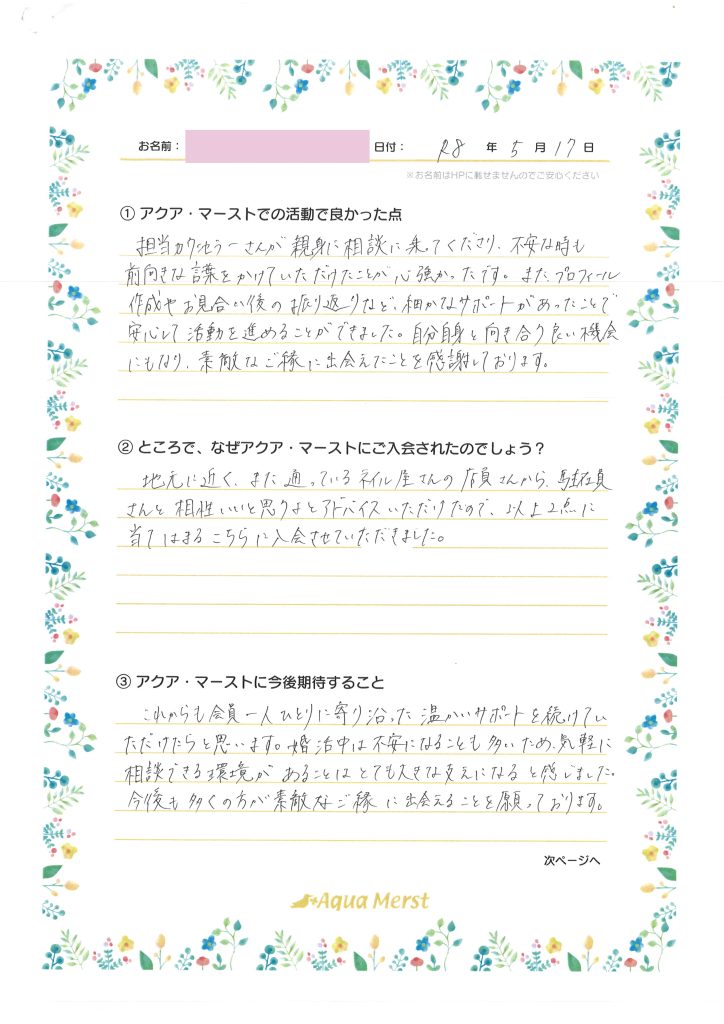 お名前：
日付： R8 年 5 月 17 日
※お名前はHPに載せませんのでご安心ください
① アクア・マーストでの活動で良かった点
担当カウンセラーさんが親身に相談に乗ってくださり、不安な時も
前向きな言葉をかけていただけたことが心強かったです。また、プロフィール
作成やお見合い後の振り返りなど、細かなサポートがあったことで
安心して活動を進めることができました。自分自身と向き合う良い機会
にもなり、素敵なご縁に出会えたことを感謝しております。
② ところで、なぜアクア・マーストにご入会されたのでしょう？
地元に近く、また通っているネイル屋さんの店員さんから、駐在員
さんと相性いいと思うよとアドバイスいただけたので、以上2点に
当てはまるこちらに入会させていただきました。
③ アクア・マーストに今後期待すること
これからも会員一人ひとりに寄り沿った温かいサポートを続けてい
ただけたらと思います。婚活中は不安になることも多いため、気軽に
相談できる環境があることはとても大きな支えになると感じました。
今後も多くの方が素敵なご縁に出会えることを願っております。
次ページへ
Aqua Merst